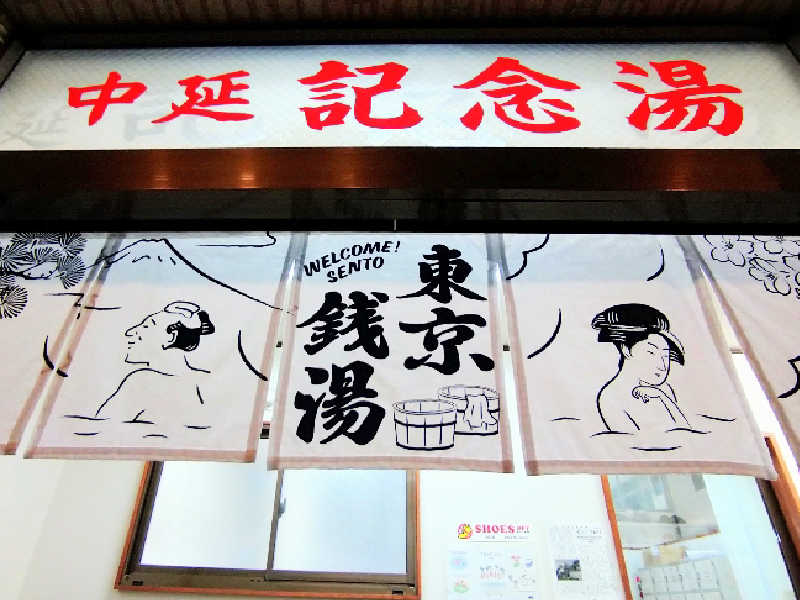 中延記念湯
WELCOME!
SENTO
東京
銭湯
SHOES